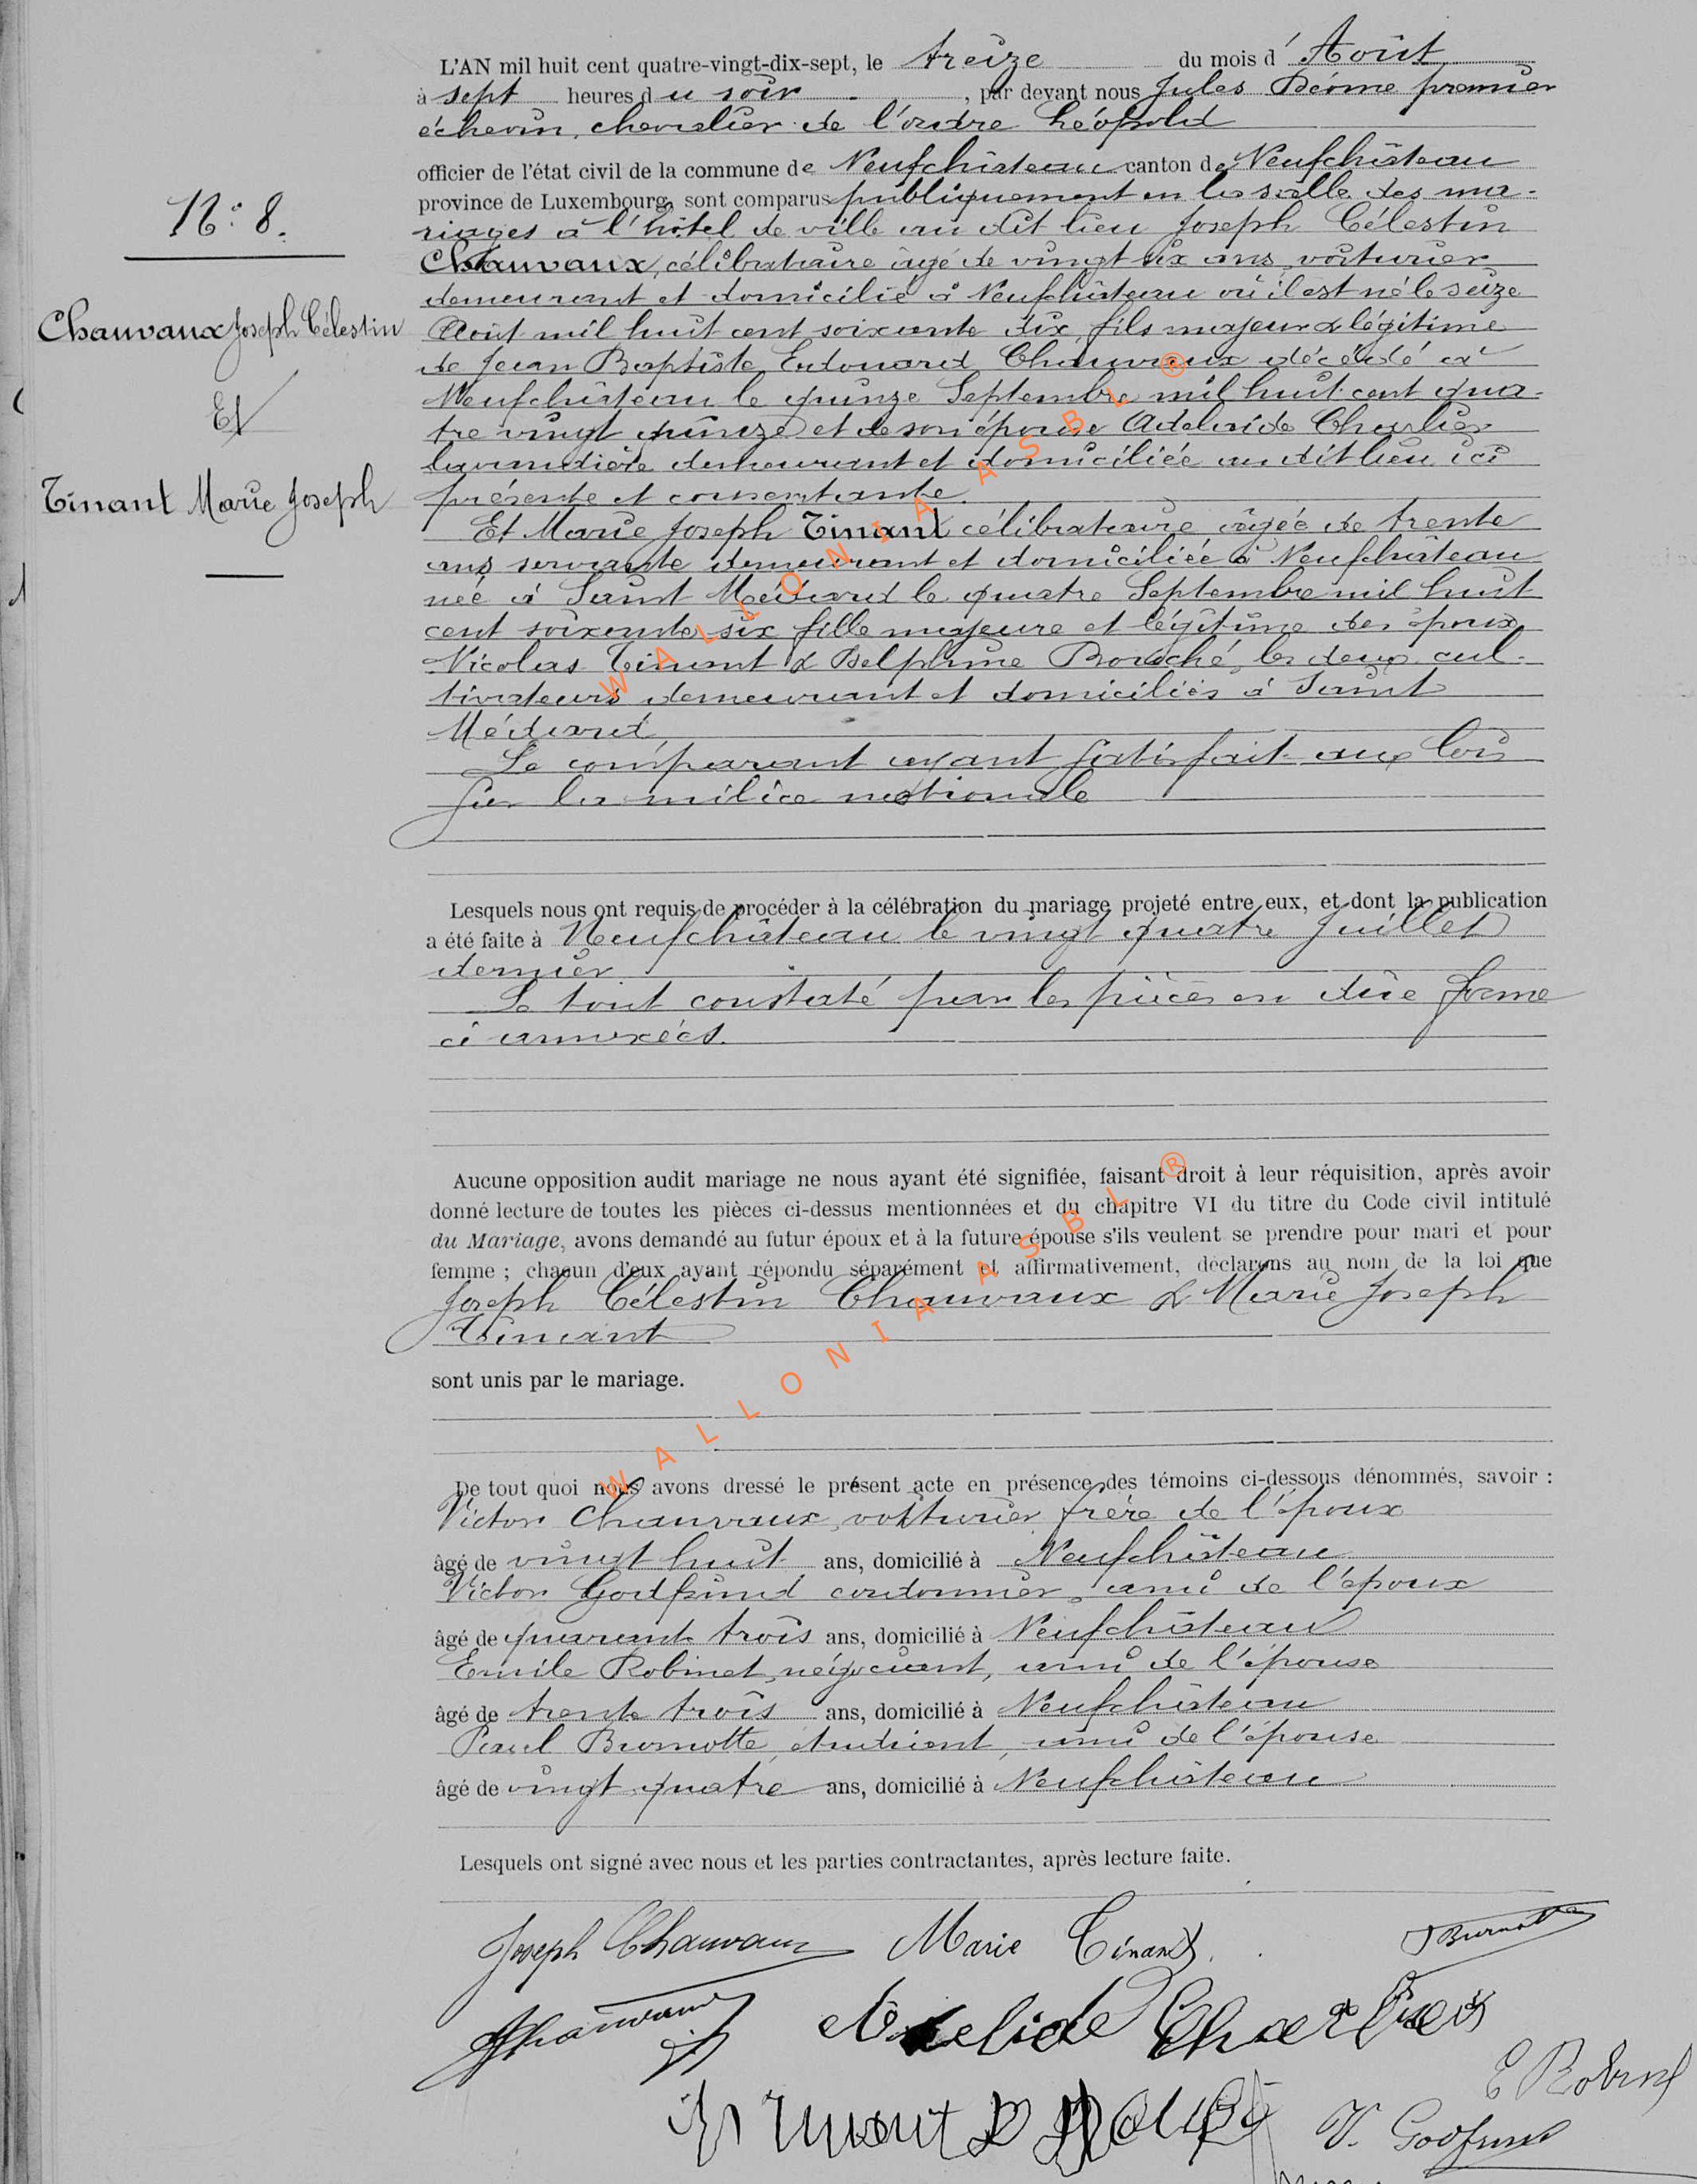 L'AN mil huit cent quatre-vingt-dix-sept, le treize du mois d'Août
à sept heures du soir, par devant nous Jules Dérome premier
échevin, chevalier de l'ordre Léopold
officier de l'état civil de la commune de Neufchâteau canton de Neufchâteau
province de Luxembourg, sont comparus publiquement en la salle des ma-
riages à l'hôtel de ville au dit lieu Joseph Célestin
Chauvaux, célibataire âgé de vingt six ans, voiturier
demeurant et domicilié à Neufchâteau où il est né le seize
Août mil huit cent soixante dix, fils majeur & légitime
de Jean Baptiste Edouard Chauvaux décédé à
Neufchâteau le quinze Septembre mil huit cent qua-
tre vingt quinze et de son épouse Adelaïde Charlier
lavandière demeurant et domiciliée au dit lieu ici
présente et consentante.
Et Marie Joseph Tinant célibataire âgée de trente
ans servante demeurant et domiciliée à Neufchâteau
née à Saint Médard le quatre Septembre mil huit
cent soixante six fille majeure et légitime des époux
Nicolas Tinant & Delphine Bouché, les deux cul-
tivateurs demeurant et domiciliés à Saint
Médard,
Le comparant ayant satisfait aux lois
sur la milice nationale
N° 8.
Chauvaux Joseph Célestin
Et
Tinant Marie Joseph
Lesquels nous ont requis de procéder à la célébration du mariage projeté entre eux, et dont la publication
a été faite à Neufchâteau le vingt quatre Juillet
dernier
Le tout constaté par les pièces en dûe forme
ci annexées.
Aucune opposition audit mariage ne nous ayant été signifiée, faisant droit à leur réquisition, après avoir
donné lecture de toutes les pièces ci-dessus mentionnées et du chapitre VI du titre du Code civil intitulé
du Mariage, avons demandé au futur époux et à la future épouse s'ils veulent se prendre pour mari et pour
femme ; chacun d'eux ayant répondu séparément et affirmativement, déclarons au nom de la loi que
Joseph Célestin Chauvaux & Marie Joseph
Tinant
sont unis par le mariage.
De tout quoi nous avons dressé le présent acte en présence des témoins ci-dessous dénommés, savoir :
Victor Chauvaux, voiturier frère de l'époux
âgé de vingt huit ans, domicilié à Neufchâteau
Victor Godfrind cordonnier, ami de l'époux
âgé de quarante trois ans, domicilié à Neufchâteau
Emile Robinet, négociant, ami de l'épouse
âgé de trente trois ans, domicilié à Neufchâteau
Paul Burnotte, étudiant, ami de l'épouse
âgé de vingt quatre ans, domicilié à Neufchâteau
Lesquels ont signé avec nous et les parties contractantes, après lecture faite.
Joseph Chauvaux Marie Tinant. Burnotte
Chauvaux Adelide Charlier
E Robinet
Tinant D Bouché V. Godfrind
WALLONIA ASBL ®
WALLONIA ASBL ®